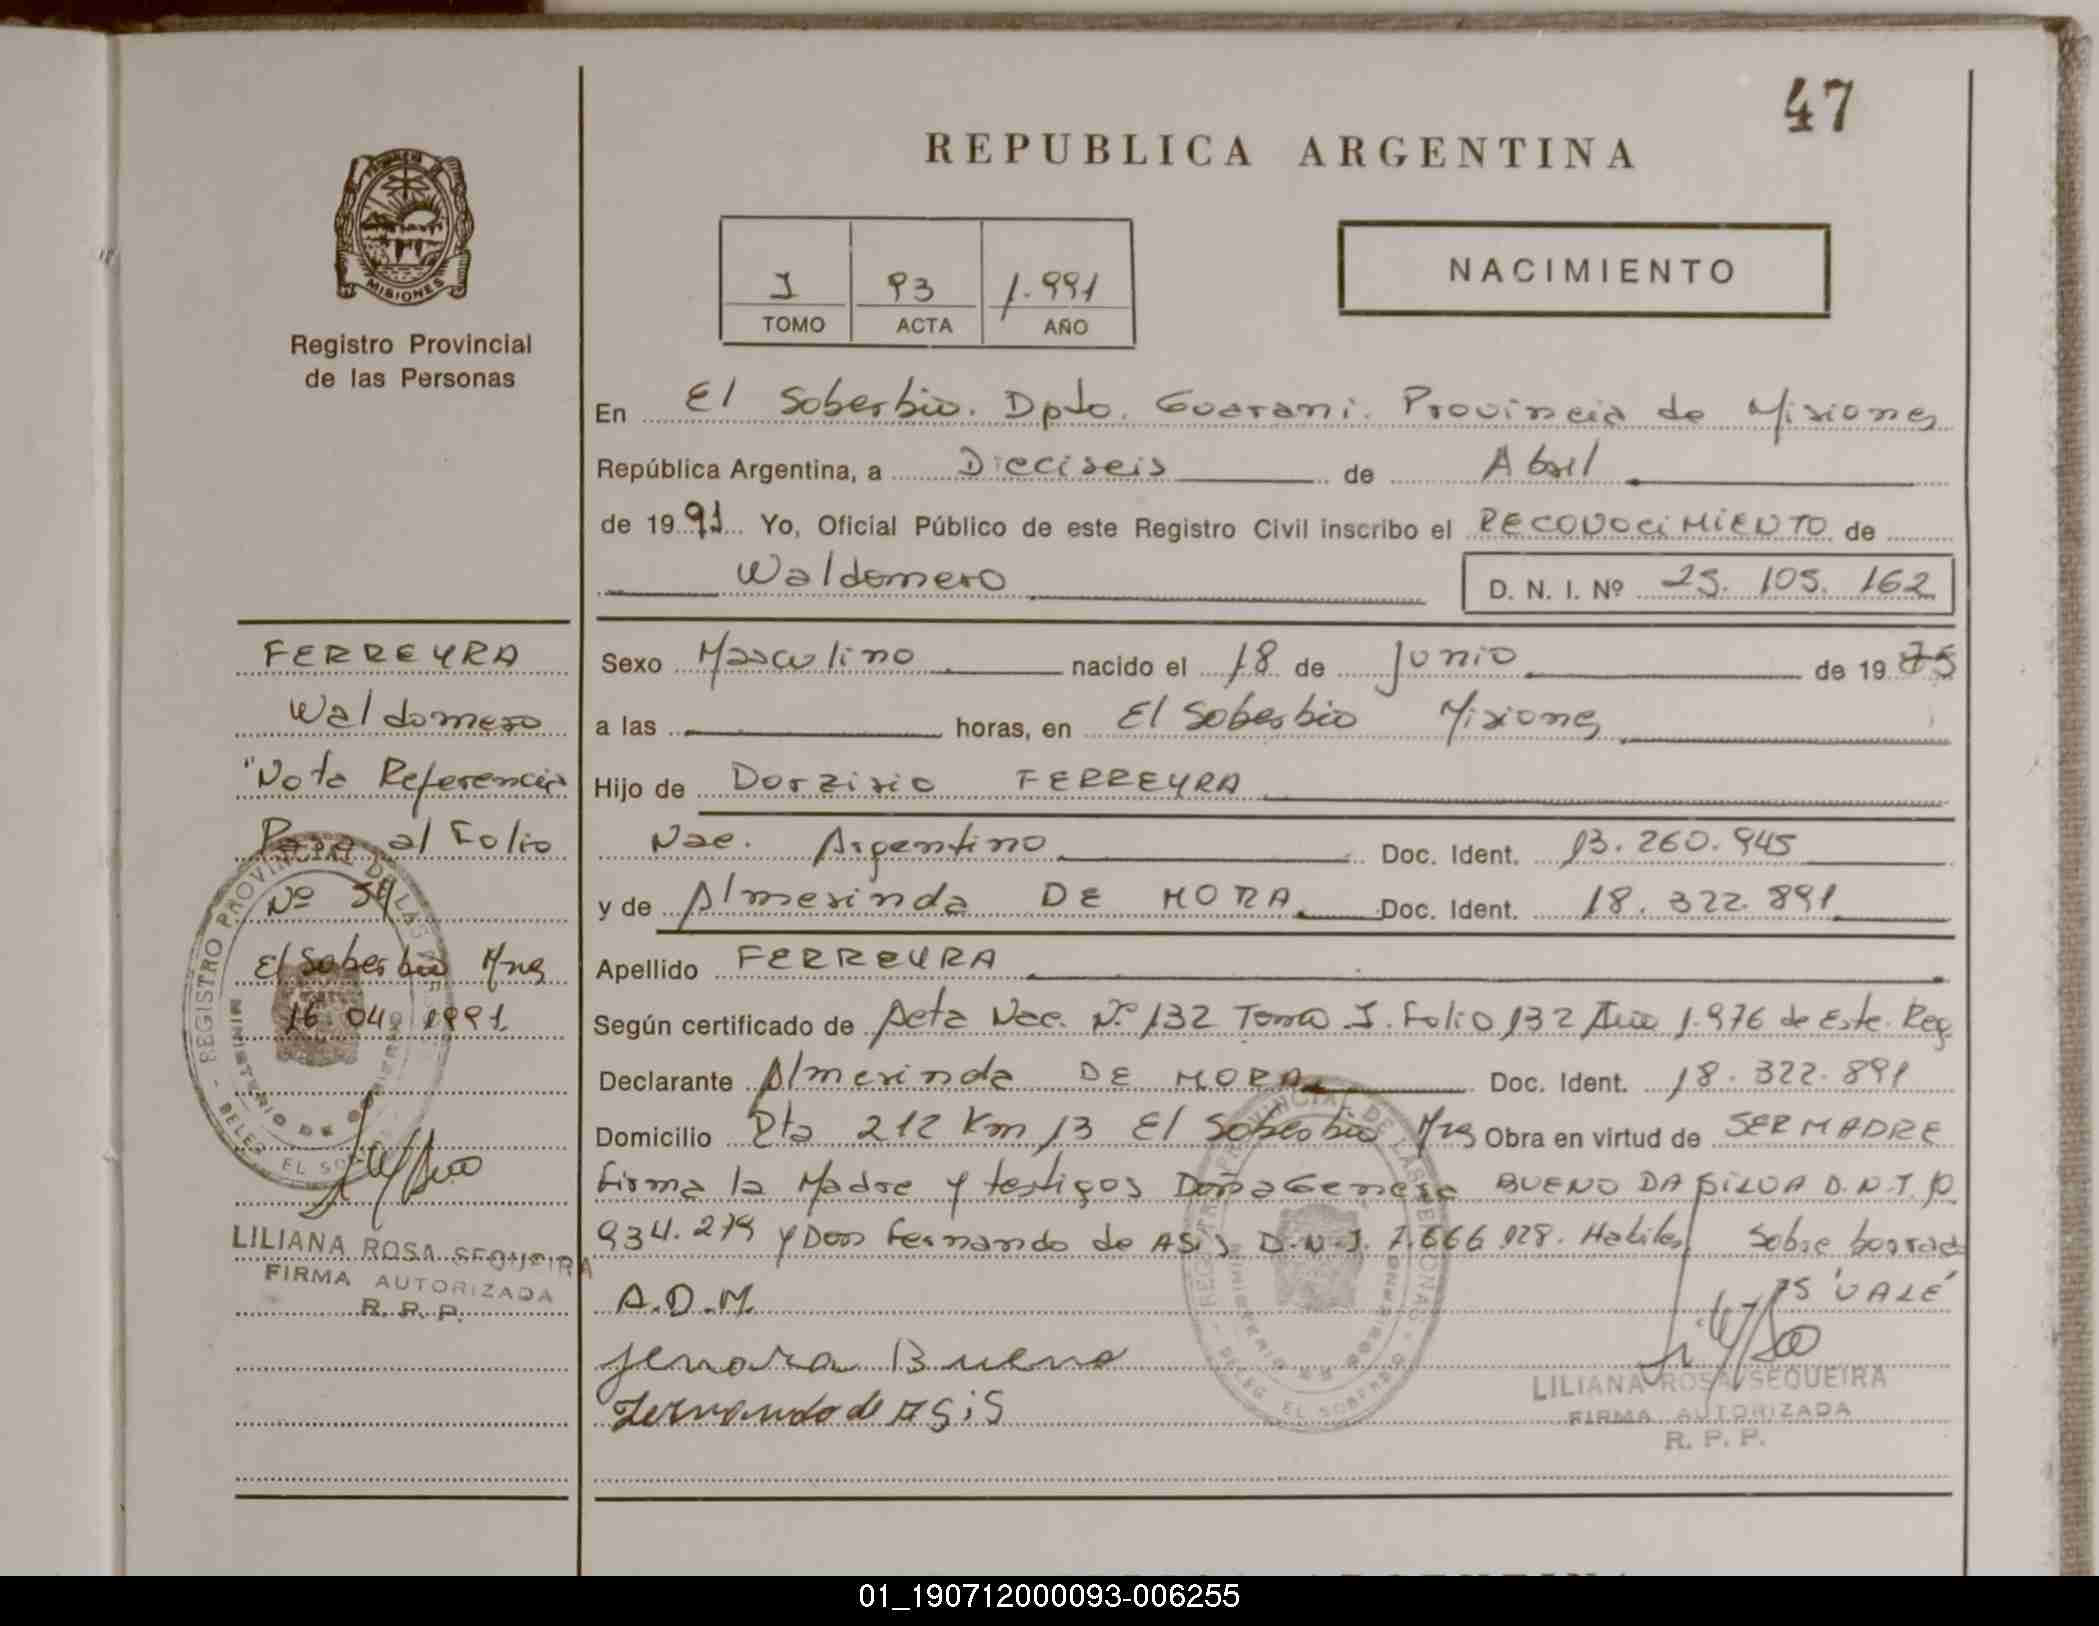 47
REPUBLICA ARGENTINA
PROVINCIA DE
MISIONES
Registro Provincial
de las Personas
I 93 1.991
TOMO ACTA AÑO
NACIMIENTO
En El Soberbio. Dpto. Guarani. Provincia de Misiones
República Argentina, a Dieciseis de Abril
de 1991 Yo, Oficial Público de este Registro Civil inscribo el RECONOCIMIENTO de
Waldomero D. N. I. Nº 25. 105. 162
Sexo Masculino nacido el 18 de Junio de 1975
a las horas, en El Soberbio Misiones
Hijo de Dorzirio FERREYRA
Nac. Argentino Doc. Ident. 13.260.945
y de Almerinda DE MORA Doc. Ident. 18.322.891
Apellido FERREYRA
Según certificado de Acta Nac. Nº 132 Tomo I. Folio 132 Año 1.976 de Este. Reg
Declarante Almerinda DE MORA Doc. Ident. 18.322.891
Domicilio Rta 212 Km 13 El Soberbio Mns Obra en virtud de SER MADRE
Firma la Madre y testigos Doña Genera BUENO DA SILVA D.N.I.
934.279 y Don Fernando de ASIS D.N.I. 7.666.128. Habiles Sobre borrado
75 'VALE'
A.D.M.
Jenara Bueno
Fernando de Asis
LILIANA ROSA SEQUEIRA
FIRMA AUTORIZADA
R. P. P.
FERREYRA
Waldomero
"Nota Referencia
Pasa al Folio
Nº 54
El Soberbio Mns
16 04 1991
REGISTRO PROVINCIAL DE LAS PERSONAS
MINISTERIO DE GOBIERNO
DELEG EL SOBERBIO
LILIANA ROSA SEQUEIRA
FIRMA AUTORIZADA
R. P. P.
REGISTRO PROVINCIAL DE LAS PERSONAS
MINISTERIO DE GOBIERNO
DELEG EL SOBERBIO
01_190712000093-006255